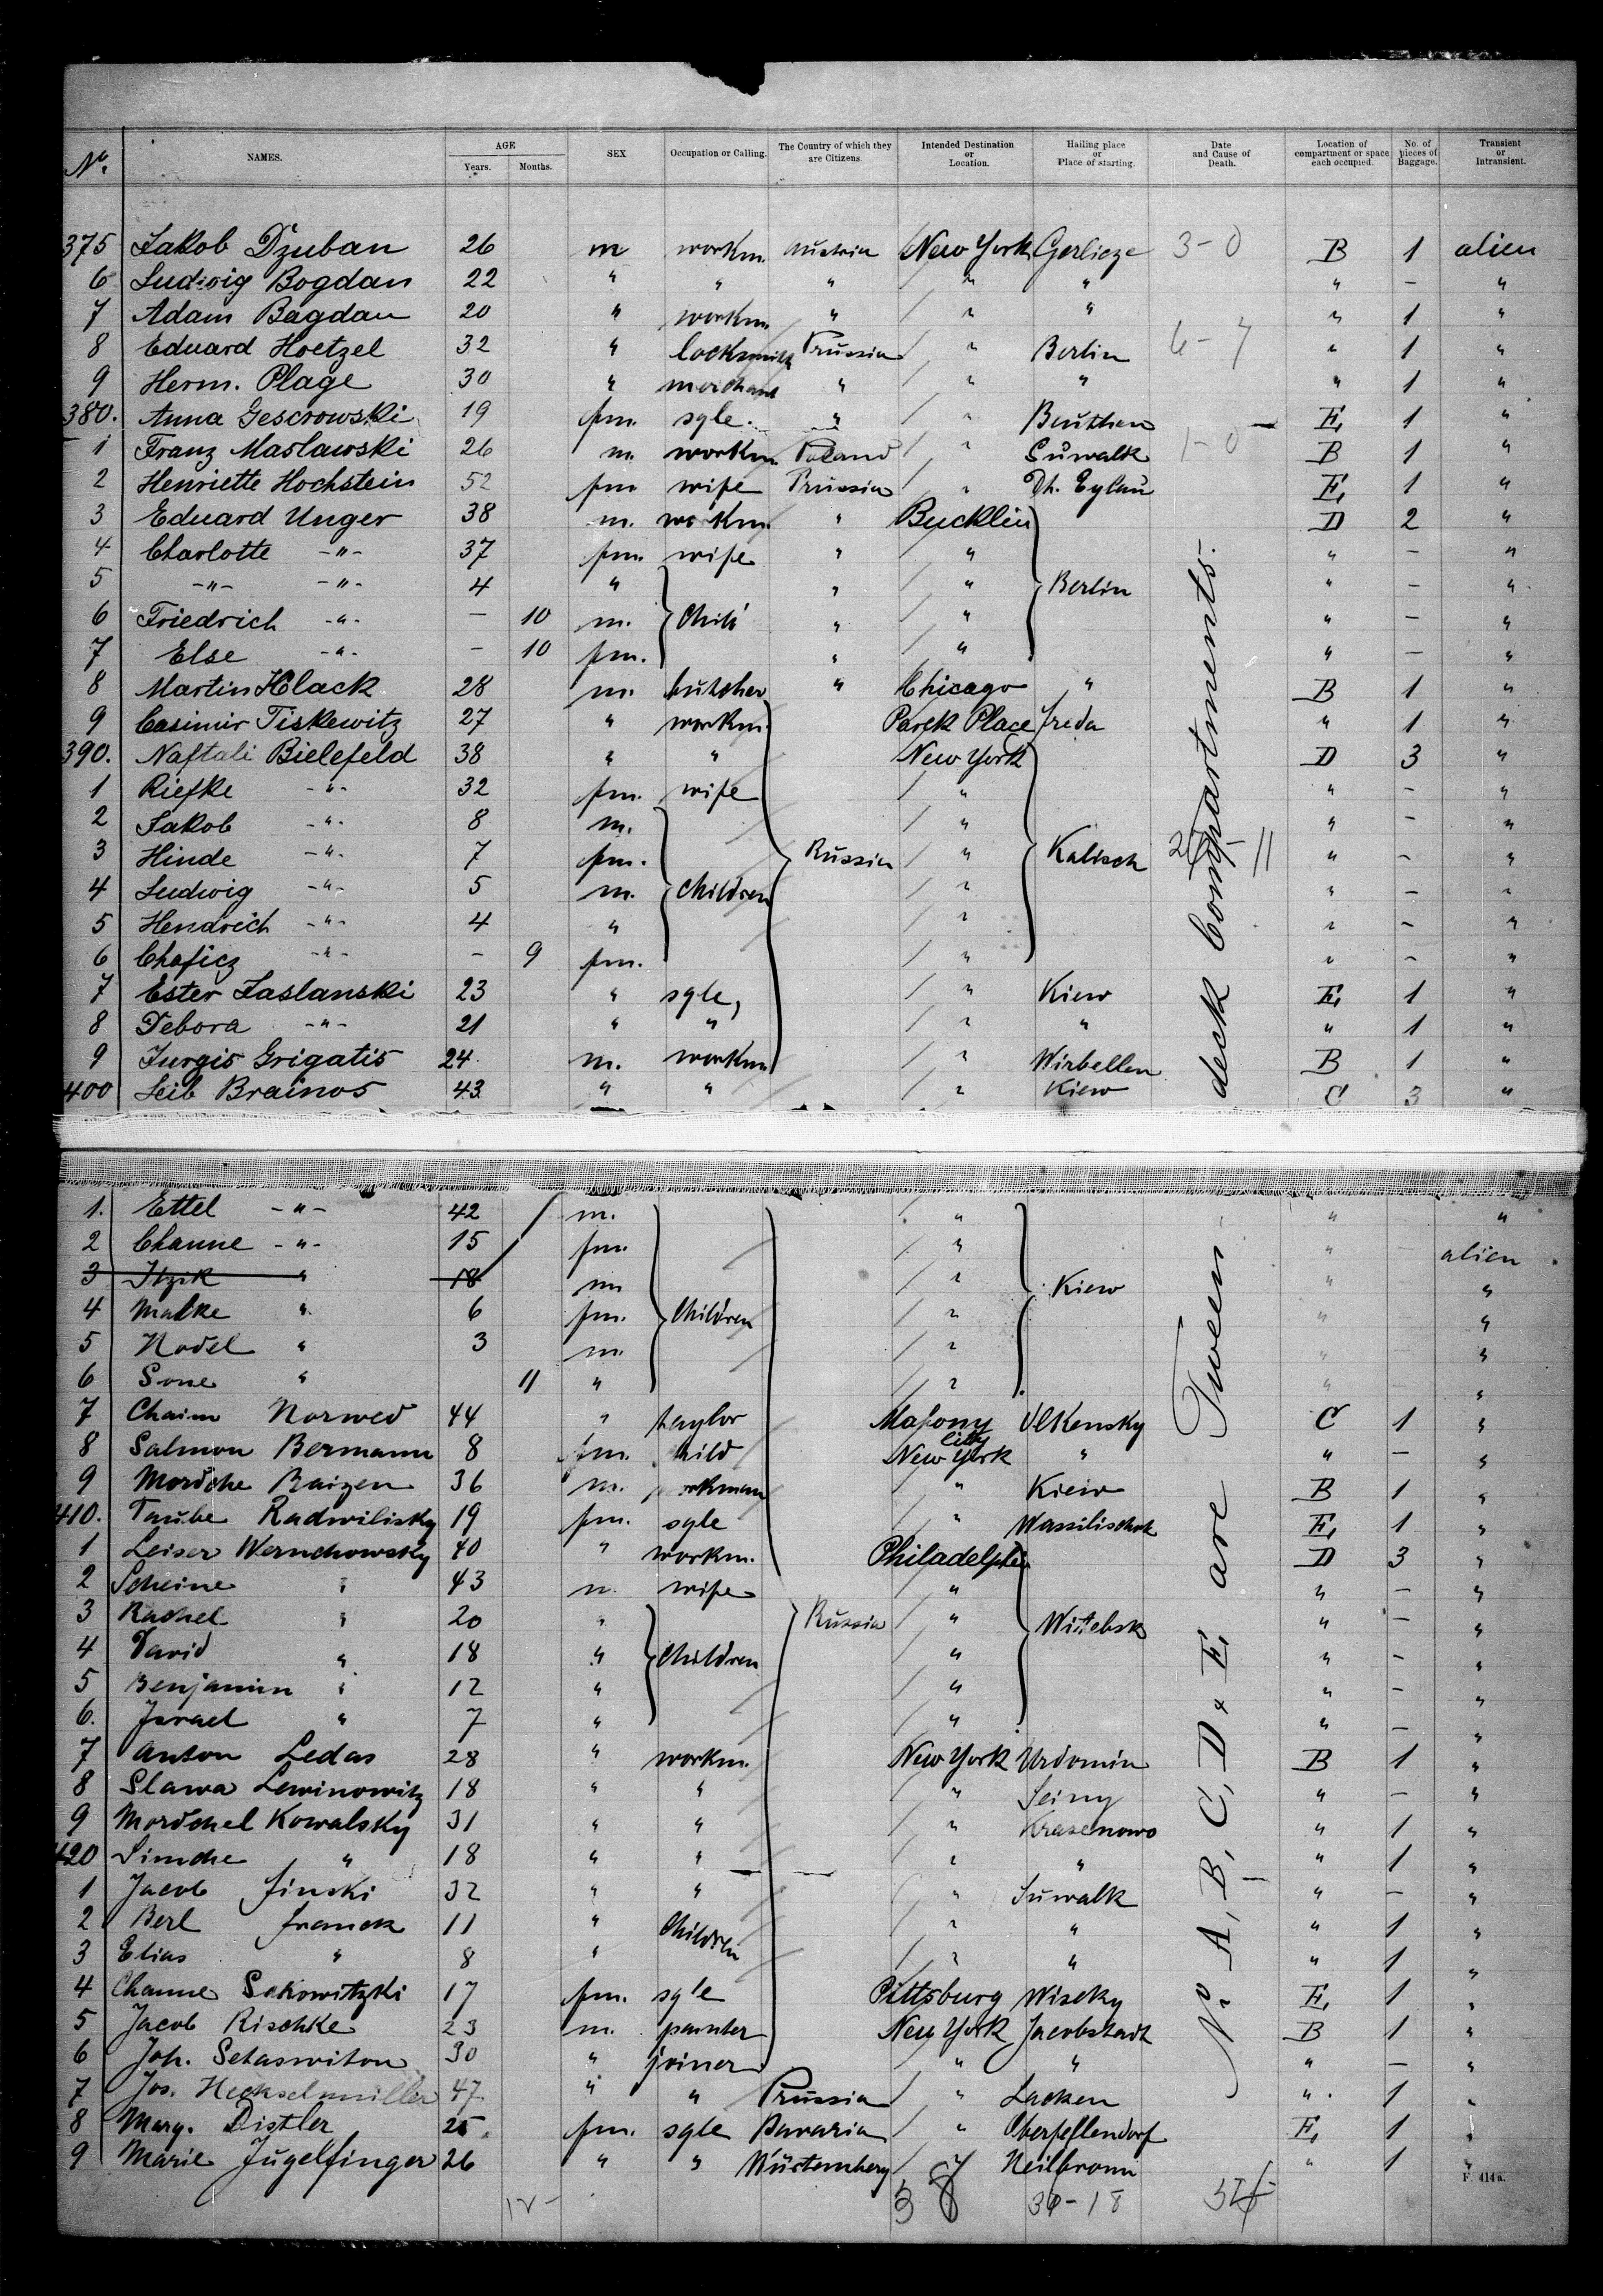 No. NAMES. AGE Years. Months. SEX Occupation or Calling. The Country of which they are Citizens. Intended Destination or Location. Hailing place or Place of starting. Date and Cause of Death. Location of compartment or space each occupied. No. of pieces of Baggage. Transient or Intransient.
375 Jakob Dzuban 26 m workm. Austria New York Gorlicze 3-0 B 1 alien
6 Ludwig Bogdan 22 " " " " " " - "
7 Adam Bagdan 20 " workm. " " " " 1 "
8 Eduard Hoetzel 32 " locksmith Prussia " Berlin 6-7 " 1 "
9 Herm. Plage 30 " merchant " " " " 1 "
380. Anna Gescrowski 19 fm. sgle. " " Beuthen E, 1 "
1 Franz Maslawski 26 m. workm. Poland " Suwalk 1-0 B 1 "
2 Henriette Hochstein 52 fm wife Prussia " Dh. Eylau E, 1 "
3 Eduard Unger 38 m. workm. " Bucklin D 2 "
4 Charlotte -"- 37 fm. wife " " " - "
5 -"- -"- 4 " " " Berlin " - "
6 Friedrich -"- - 10 m. Child " " " - "
7 Else -"- - 10 fm. " " " - "
8 Martin Hlack 28 m. butcher " Chicago " B 1 "
9 Casimir Tiskewitz 27 " workm. Parek Place Freda " 1 "
390. Naftali Bielefeld 38 " " New York D 3 "
1 Riefke -"- 32 fm. wife " " - "
2 Jakob -"- 8 m. " " - "
3 Hinde -"- 7 fm. Russia " Kalisch 2 11 " - "
4 Ludwig -"- 5 m. Children " " - "
5 Hendrich -"- 4 " " " - "
6 Chaficz -"- - 9 fm. " " - "
7 Ester Laslanski 23 " sgle, " Kiew E, 1 "
8 Debora -"- 21 " " " " " 1 "
9 Jurgis Grigatis 24. m. workm " Wirbellen B 1 "
400 Leib Brainos 43 " " " Kiew C 3 "
1. Ettel -"- 42 m. " " "
2 Channe -"- 15 fm. " " - alien
3 Itzik " 18 m " Kiew " "
4 Malke " 6 fm. Children " " "
5 Nodel " 3 m. " " "
6 Sone " 11 " " " "
7 Chaim Norwed 44 " taylor Mahony City Olkensky C 1 "
8 Salmon Bermann 8 fm. child New York " " - "
9 Mordche Baizen 36 m. workman " Kiew B 1 "
410. Taube Radwilisky 19 fm. sgle " Wassilischok E, 1 "
1 Leiser Wernchowsky 40 " workm. Philadelphia D 3 "
2 Scheine " 43 m. wife " " - "
3 Rachel " 20 " Russia " Witebsk " - "
4 David " 18 " Children " " - "
5 Benjamin " 12 " " " - "
6. Israel " 7 " " " - "
7 Anton Ledas 28 " workm. New York Urdomin B 1 "
8 Slawa Lewinowitz 18 " " " Seiny " - "
9 Mordchel Kowalsky 31 " " " Krasenowo " 1 "
420 Simche " 18 " " " " " 1 "
1 Jacob Finski 32 " " " Suwalk " - "
2 Berl Franck 11 " Children " " " 1 "
3 Elias " 8 " " " " 1 "
4 Channe Sakowitzki 17 fm. sgle Pittsburg Wiscky E, 1 "
5 Jacob Rischke 23 m. painter New York Jacobstadt B 1 "
6 Joh. Setaswiton 30 " joiner " " " - "
7 Jos. Heckselmiller 47 " " Prussia " Lacken " 1 "
8 Marg. Distler 25 fm. sgle Bavaria " Oberfellendorf E, 1 "
9 Marie Jugelfinger 26 " " Würtemberg " Heilbronn " 1 "
No A, B, C, D & E, are Tween deck Compartments.
12- 38 36-18
F. 414a.